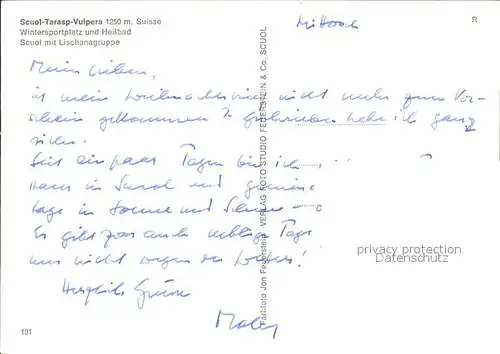 Scuol-Tarasp-Vulpera 1250 m. Suisse
Wintersportplatz und Heilbad
Scuol mit Lischanagruppe
Mittwoch
R
Meine Lieben,
ist mein nicht mehr zum Vor-
schein gekommen? Geschrieben habe ich ganz
sicher.
Seit ein paar Tagen bin ich
Haus in Scuol und
Tage in Sonne und Schnee -
Es gibt zwar auch neblige Tage
nur nicht wegen des
Herzliche Grüsse
Farbfoto Jon Feuerstein VERLAG FOTO STUDIO FEUERSTEIN & Co. SCUOL
privacy protection
Datenschutz
101